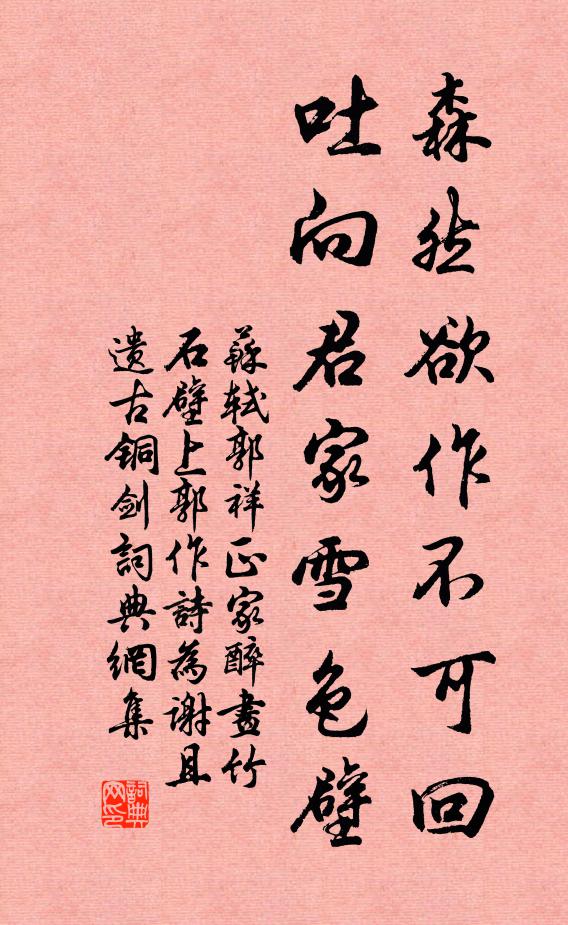 森然欲作不可回
吐向君家雪色壁
蘇軾郭祥正家醉畫竹
石壁上郭作詩為謝且
遺古銅劍詞典網集
詞典
网印